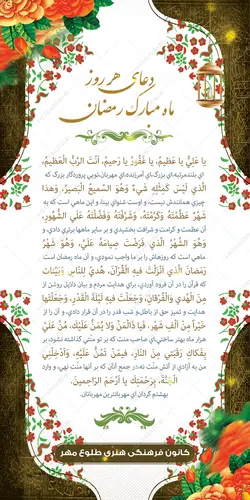 دعای هر روز
ماه مبارک رمضان
یا عَلِیُّ یا عَظیمُ، یا غَفُورُ یا رَحیمُ، اَنْتَ الرَّبُّ الْعَظیمُ،
ای بلندمرتبه‌ای بزرگ ای آمرزنده‌ای مهربان‌تویی پروردگار بزرگ که
الَّذي لَیْسَ کَمِثْلِهِ شَيْءٌ وَهُوَ السَّمیعُ الْبَصیرُ، وَهذا
چیزی همانندش نیست، و اوست شنوای بینا، و این ماهی است که به
شَهْرٌ عَظَّمْتَهُ وَکَرَّمْتَهُ، وَشَرَّفْتَهُ وَفَضَّلْتَهُ عَلَي الشُّهُورِ،
آن عظمت و کرامت و شرافت بخشیدی و بر سایر ماهها برتری دادی، و
وَهُوَ الشَّهْرُ الَّذي فَرَضْتَ صِیامَهُ عَلَيَّ، وَهُوَ شَهْرُ
ماهی است که روزه‌اش را بر ما واجب نمودی، و آن ماه رمضان است
رَمَضانَ الَّذي اَنْزَلْتَ فیهِ الْقُرْآنَ، هُديً لِلنّاسِ وَبَیِّناتٍ
که قرآن را در آن فرود آوردی، برای هدایت مردم و بیان دلایل روشن از
مِنَ الْهُدي وَالْفُرْقانَ، وَجَعَلْتَ فیهِ لَیْلَةَ الْقَدْرِ، وَجَعَلْتَها
هدایت و تمیز حق از باطل، و شب قدر را در آن قرار دادی، و آن را از
خَیْراً مِنْ اَلْفِ شَهْرٍ، فَیا ذَالْمَنِّ وَلا یُمَنُّ عَلَیْكَ، مُنَّ عَلَيَّ
هزار ماه بهتر ساختی‌ای صاحب منت که بر تو منّتی گذاشته نشود، بر
بِفَکاكِ رَقَبَتي مِنَ النّارِ، فیمَنْ تَمُنُّ عَلَیْهِ، وَاَدْخِلْنِي
من به آزادی از آتش منّت نه، در جمع آنان که بر آنها منّت نهی، و وارد
الْجَنَّةَ، بِرَحْمَتِكَ یا اَرْحَمَ الرّاحِمینَ.
بهشتم گردان ای مهربانترین مهربانان.
کانون فرهنگی هنری طلوع مهر